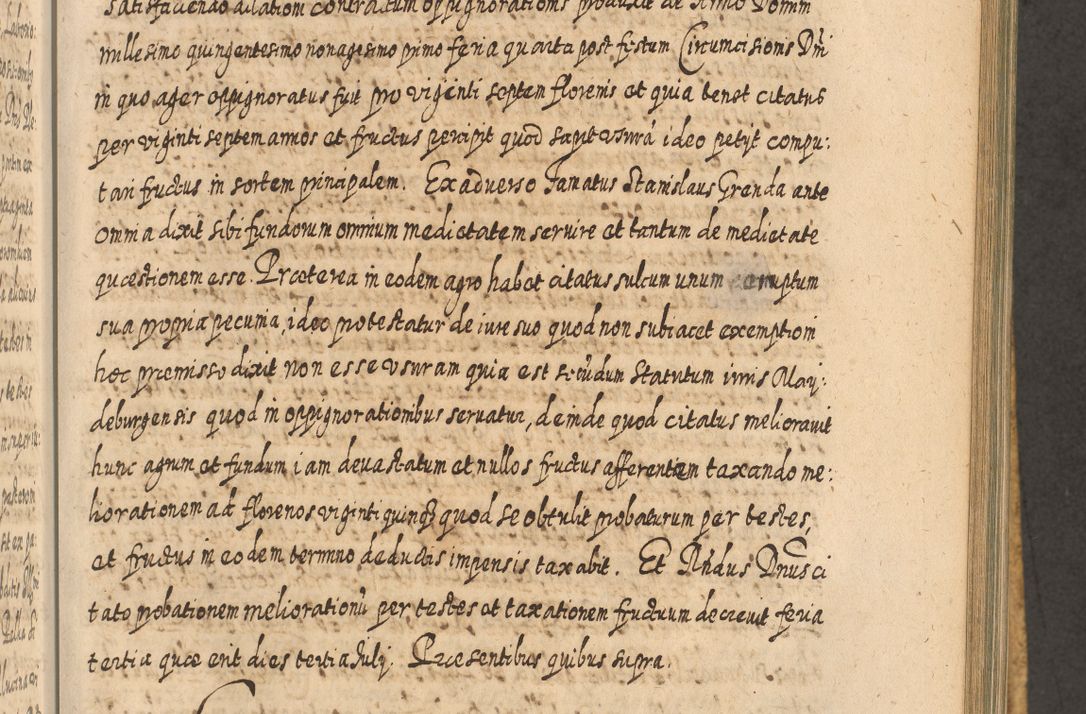 satisfaciendo citationi contractum oppignorationis produxit de Anno Domini
millesimo quingentesimo nonagesimo primo feria quarta post festum Circumcisionis Dni
in quo ager oppignoratus fuit pro viginti septem florenis et quia tenet citatus
per viginti septem annos et fructus percipit quod sapit usurā ideo petijt compu:
tari fructus in sortem principalem. Ex adverso Famatus Stanislaus Grenda ante
omnia dixit sibi fundorum omnium medietatem servire et tantum de medietate
quæstionem esse. Præterea in eodem agro habet citatus sulcum unum emptum
sua propria pecunia, ideo protestatur de iure suo quod non subiacet exemptioni
hoc præmisso dixit non esse usuram quia est secūdum Statutum iuris May:
deburgensis quod in oppignorationibus servatur, deinde quod citatus melioravit
hunc agrum et fundum iam devastatum et nullos fructus afferentem taxando me:
liorationem ad florenos viginti quinq3 quod se obtulit probaturum per testes,
et fructus in eodem termino deductis impensis taxabit. Et Rñdus Dnus ci
tato probationem meliorationū per testes et taxationem fructuum decrevit feria
tertia quæ erit dies tertia Julij. Præsentibus quibus supra.